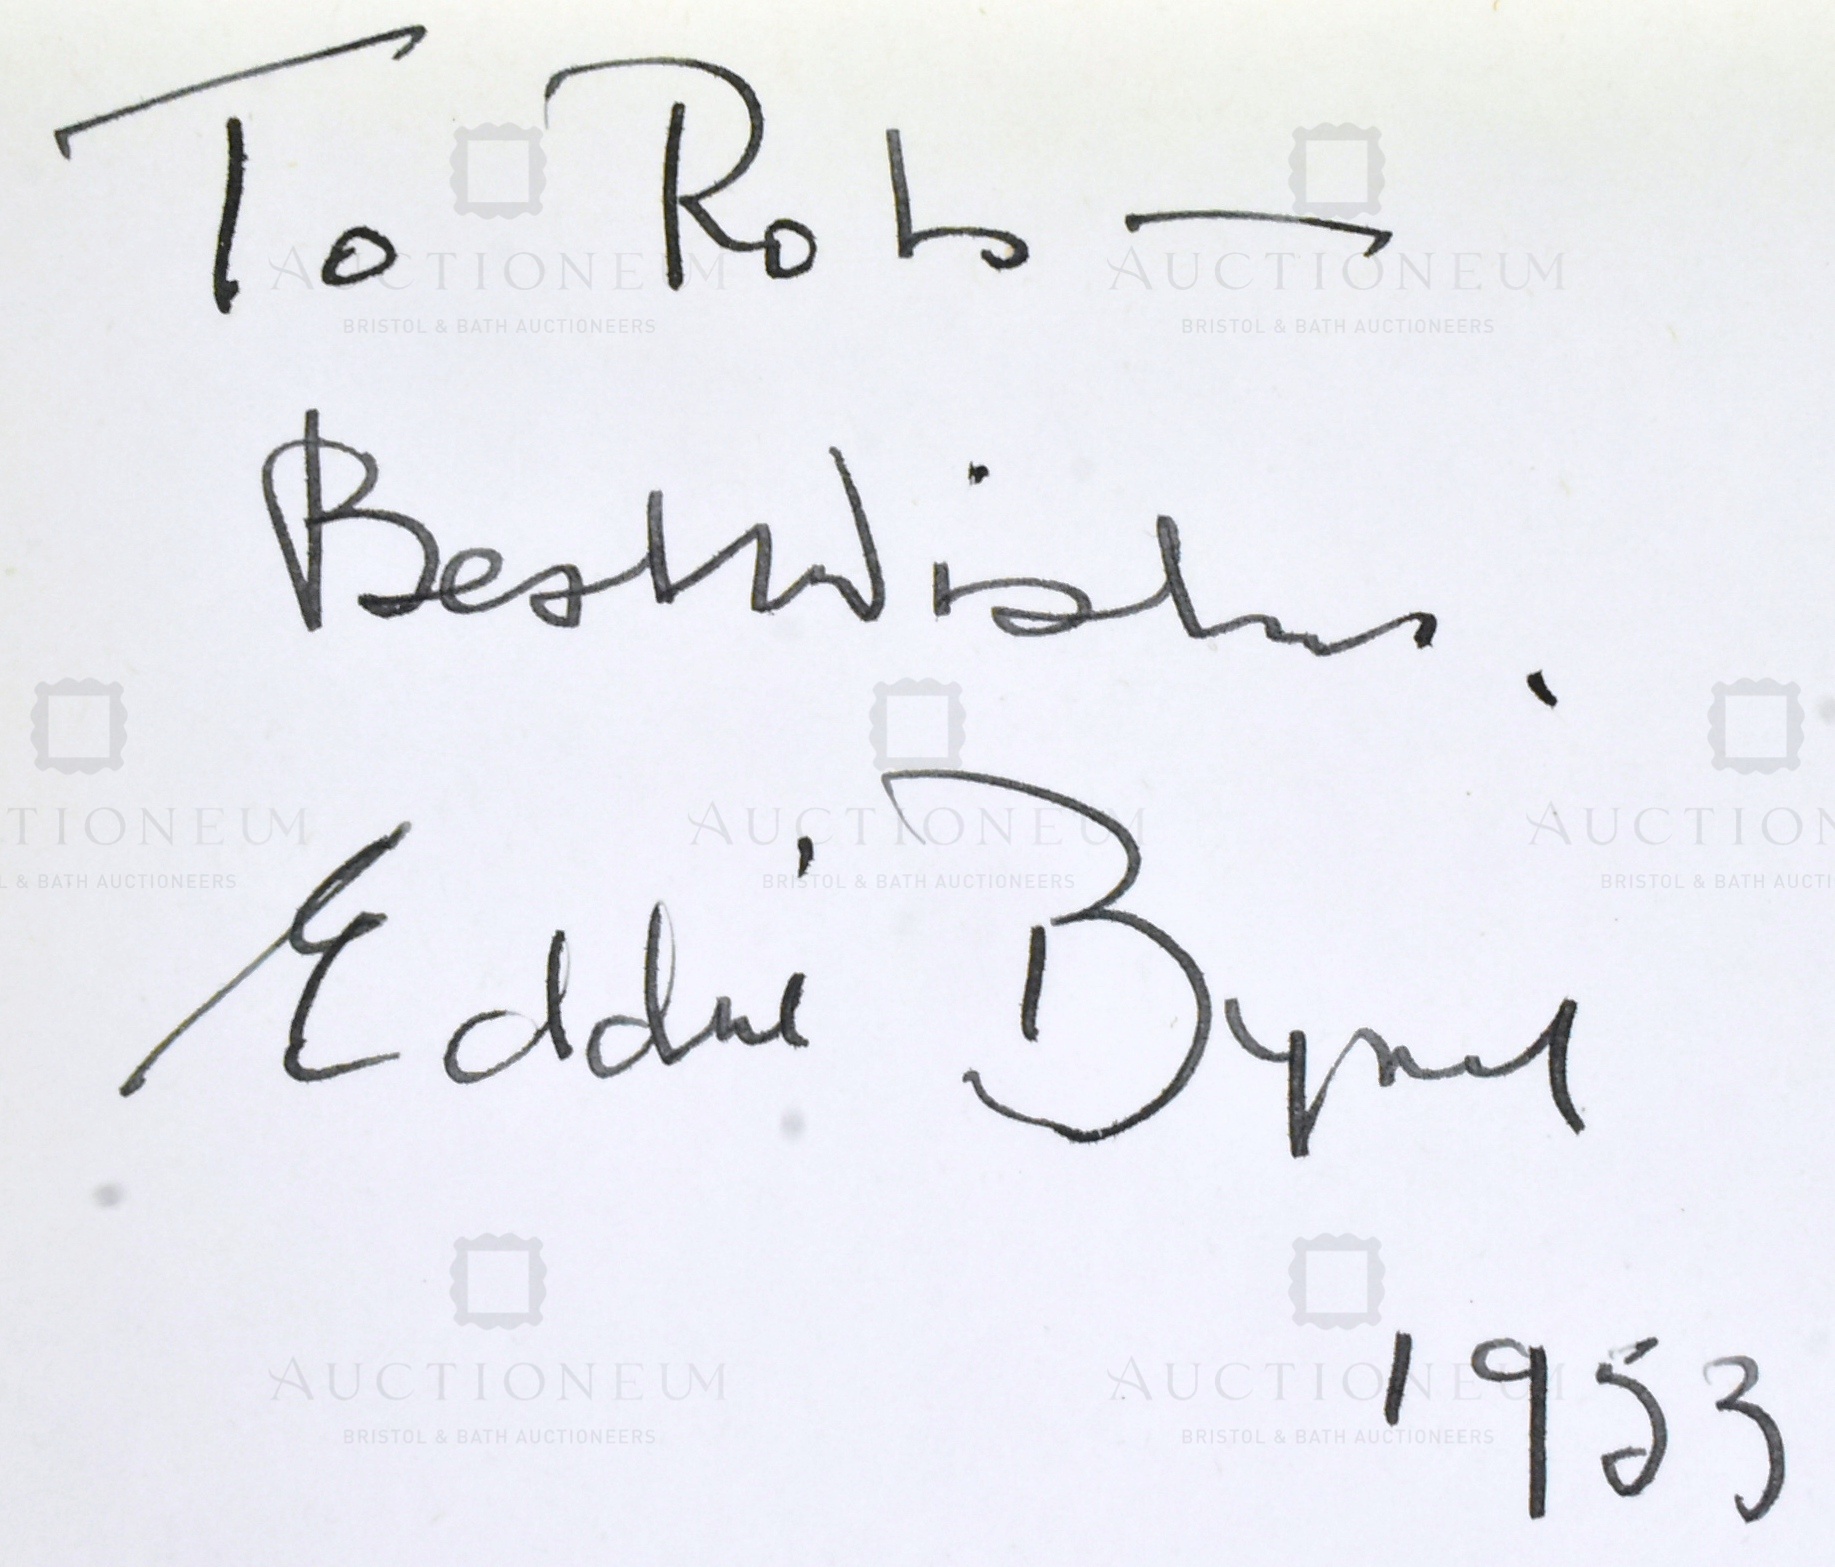 To Rob —
AUCTIONEUM AUCTIONEUM
BRISTOL & BATH AUCTIONEERS BRISTOL & BATH AUCTIONEERS
Best Wishes.
TIONEUM AUCTIONEUM AUCTION
L & BATH AUCTIONEERS BRISTOL & BATH AUCTIONEERS BRISTOL & BATH AUCTI
Eddie Byrne
AUCTIONEUM AUCTIONEUM
BRISTOL & BATH AUCTIONEERS BRISTOL & BATH AUCTIONEERS
1953